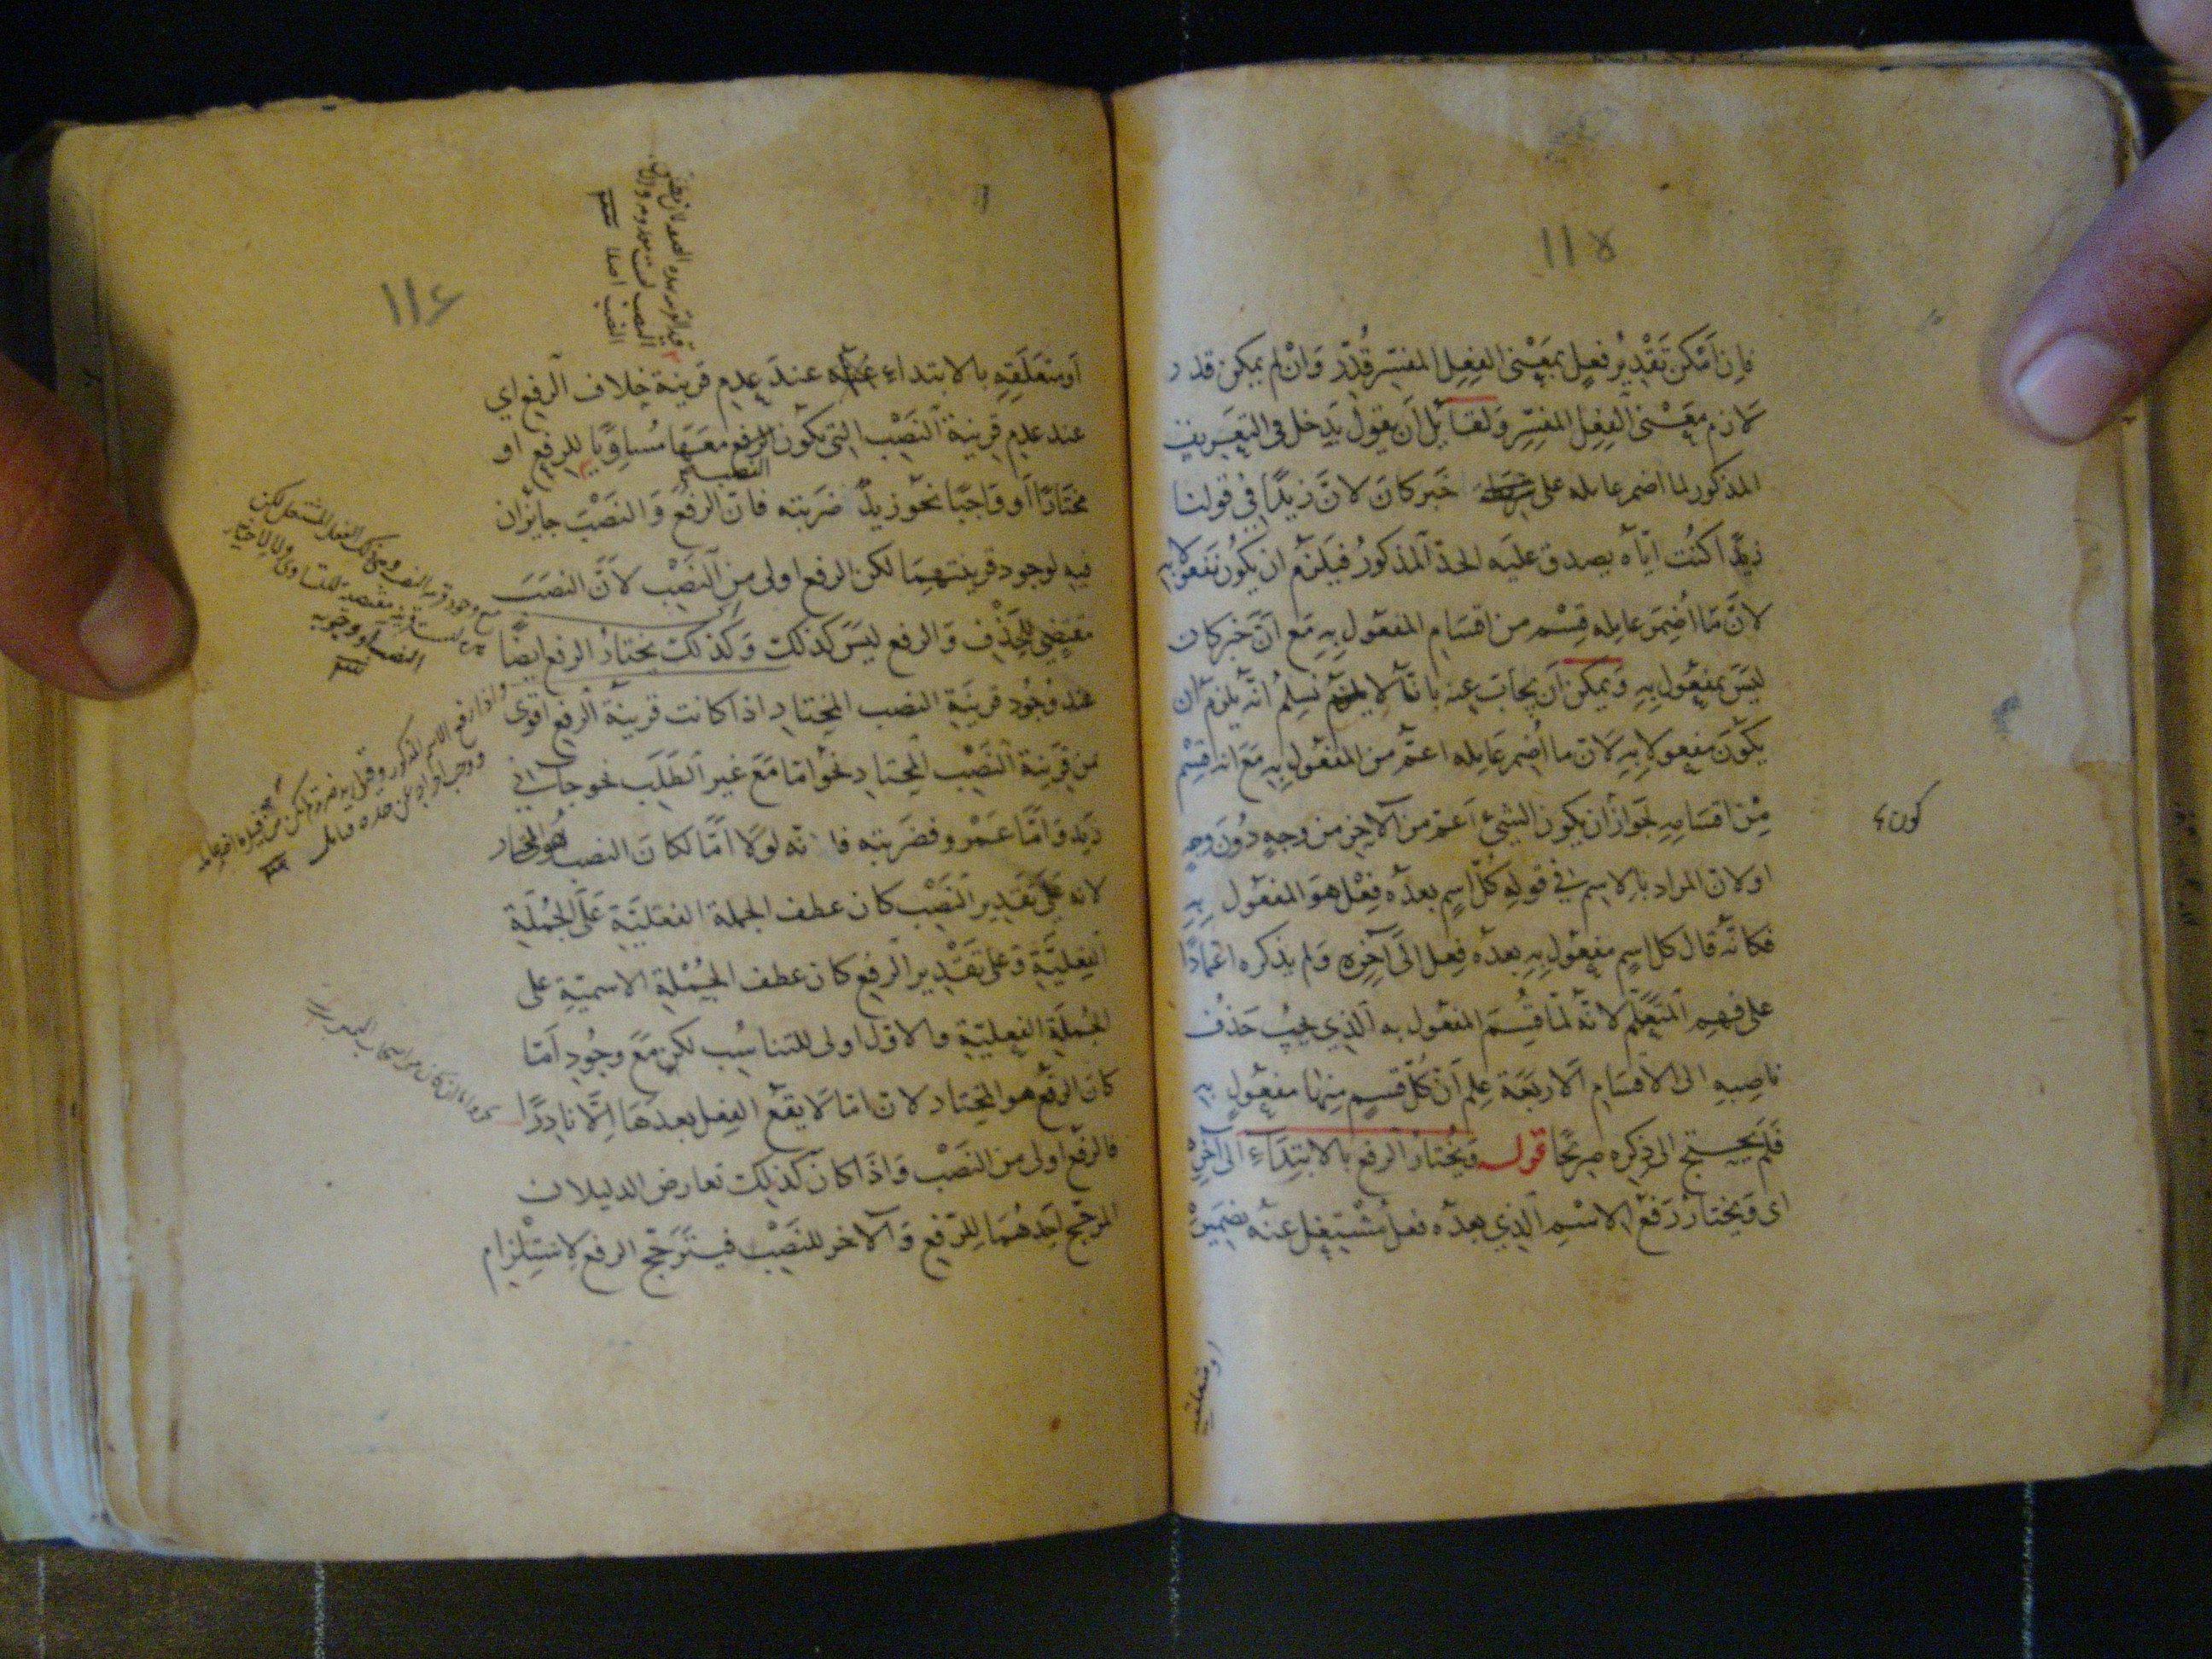 ١١٥
فان امكن تقدير فعل بمعنى الفعل المفسر قدر وان لم يمكن قدر
لازم معنى الفعل المفسر ولقائل ان يقول يدخل في التعريف
المذكور لما اضمر عامله على خبر كان لان زيدا في قولنا
زيدا كنت اياه يصدق عليه الحد المذكور فيلزم ان يكون مفعولا به
لان ما اضمر عامله قسم من اقسام المفعول به مع ان خبر كان
ليس بمفعول به ويمكن ان يجاب عنه بانا لا نسلم انه يلزم ان
يكون مفعولا به لان ما اضمر عامله اعم من المفعول به مع انه قسم
من اقسامه لجواز ان يكون الشئ اعم من الآخر من وجه دون وجه
كون
او لان المراد بالاسم في قوله كل اسم بعده فعل هو المفعول به
فكانه قال كل اسم مفعول به بعده فعل الى آخره ولم يذكره اعتمادا
على فهم المتعلم لانه لما قسم المفعول به الذي يجب حذف
ناصبه الى الاقسام الاربعة علم ان كل قسم منها مفعول به
فلم يحتج الى ذكره صريحا قوله ويختار الرفع بالابتداء الى آخره
اى ويختار رفع الاسم الذي بعده فعل مشتغل عنه بضميره
او متعلقه
١١٦
او متعلقه بالابتداء عند عدم قرينة خلاف الرفع اي
عند عدم قرينة النصب التي يكون الرفع معها مساويا للرفع او
النصب
مختارا او واجبا نحو زيد ضربته فان الرفع والنصب جايزان
فيه لوجود قرينتهما لكن الرفع اولى من النصب لان النصب
مقتضي للحذف والرفع ليس كذلك وكذلك يختار الرفع ايضا
عند وجود قرينة النصب المختار اذا كانت قرينة الرفع اقوى
من قرينة النصب المختار نحو اما مع غير الطلب نحو جاءني
زيد واما عمرو فضربته فانه لولا اما لكان النصب هو المختار
لانه على تقدير النصب كان عطف الجملة الفعلية على الجملة
الفعلية وعلى تقدير الرفع كان عطف الجملة الاسمية على
الجملة الفعلية والاول اولى للتناسب لكن مع وجود اما
كان الرفع هو المختار لان اما لا يقع الفعل بعدها الا نادرا
فالرفع اولى من النصب واذا كان كذلك تعارض الدليلان
المرجح احدهما للرفع والآخر للنصب فيترجح الرفع لاستلزام